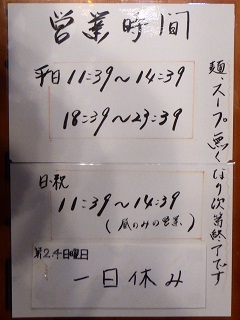 営業時間
平日 11:39〜14:39
18:39〜23:39
日・祝
11:39〜14:39
(昼のみの営業)
第2.4日曜日
一日休み
麺、スープ無くなり次第終了です